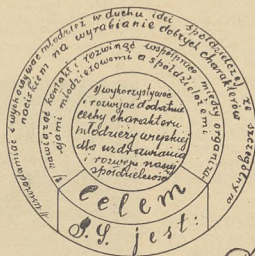 1) uświadamiać i wychowywać młodzież w duchu idei spółdzielczej ze szczególnym
naciskiem na wyrabianie dobrych charakterów
2) nawiązać kontakt i rozwinąć współpracę między organiza-
cjami młodzieżowemi a spółdzielniami
3) wykorzystywać
i rozwijać dodatnie
cechy charakteru
młodzieży wiejskiej
dla uzdrawiania
i rozwoju naszej
spółdzielczości
Celem
P.S. jest: